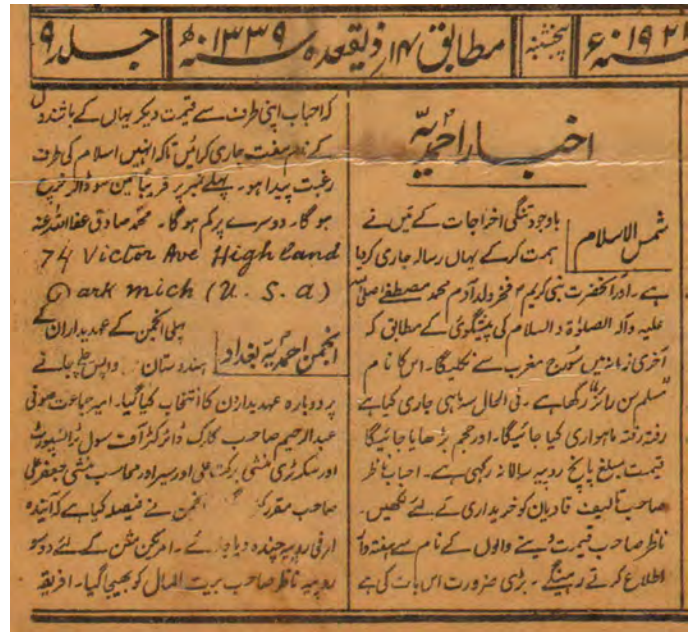 ۱۹۲۱ سنہء پنجشنبہ مطابق ۱۴ ذیقعدہ سنہ ۱۳۳۹ھ جلد ۹
اخبار احمدیہ
شمس الاسلام
باوجود تنگی اخراجات کے میں نے
ہمت کرکے یہاں رسالہ جاری کردیا
ہے۔ اور آنحضرت نبی کریم فخر ولد آدم محمد مصطفےٰ صلی اللہ
علیہ وآلہ الصلوٰۃ والسلام کی پیشگوئی کے مطابق کہ
آخری زمانہ میں سورج مغرب سے نکلیگا۔ اس کا نام
"مسلم سن رائز" رکھا ہے۔ فی الحال سہ ماہی جاری کیا ہے
رفتہ رفتہ ماہواری کیا جائیگا۔ اور حجم بڑھایا جائیگا
قیمت مبلغ پانچ روپیہ سالانہ رکھی ہے۔ احباب ناظر
صاحب تالیف قادیان کو خریداری کے لئے لکھیں۔
ناظر صاحب قیمت دینے والوں کے نام سے ہفتہ وار
اطلاع کرتے رہینگے۔ بڑی ضرورت اس بات کی ہے
کہ احباب اپنی طرف سے قیمت دیکر یہاں کے باشندوں
کے نام مفت جاری کرائیں تاکہ انہیں اسلام کی طرف
رغبت پیدا ہو۔ پہلے نمبر پر قریباً تین سو ڈالر خرچ
ہوگا۔ دوسرے پر کم ہوگا۔ محمد صادق عفا اللہ عنہ
74 Victor Ave Highland
Park Mich (U. S. a)
انجمن احمدیہ بغداد
پہلی انجمن کے عہدیداران کے
ہندوستان واپس چلے جانے
پر دوبارہ عہدیداران کا انتخاب کیا گیا۔ امیر جماعت صوفی
عبدالرحیم صاحب کلرک ڈائرکٹر آف سول ٹرانسپورٹ
اور سکرٹری منشی برکت علی اور سیر اور محاسب منشی جعفر علی
صاحب مقرر انجمن نے فیصلہ کیا ہے کہ آئندہ
ار فی روپیہ چندہ دیا جائے۔ امریکن مشن کے لئے دو سو
روپیہ ناظر صاحب بیت المال کو بھیجا گیا۔ افریقہ